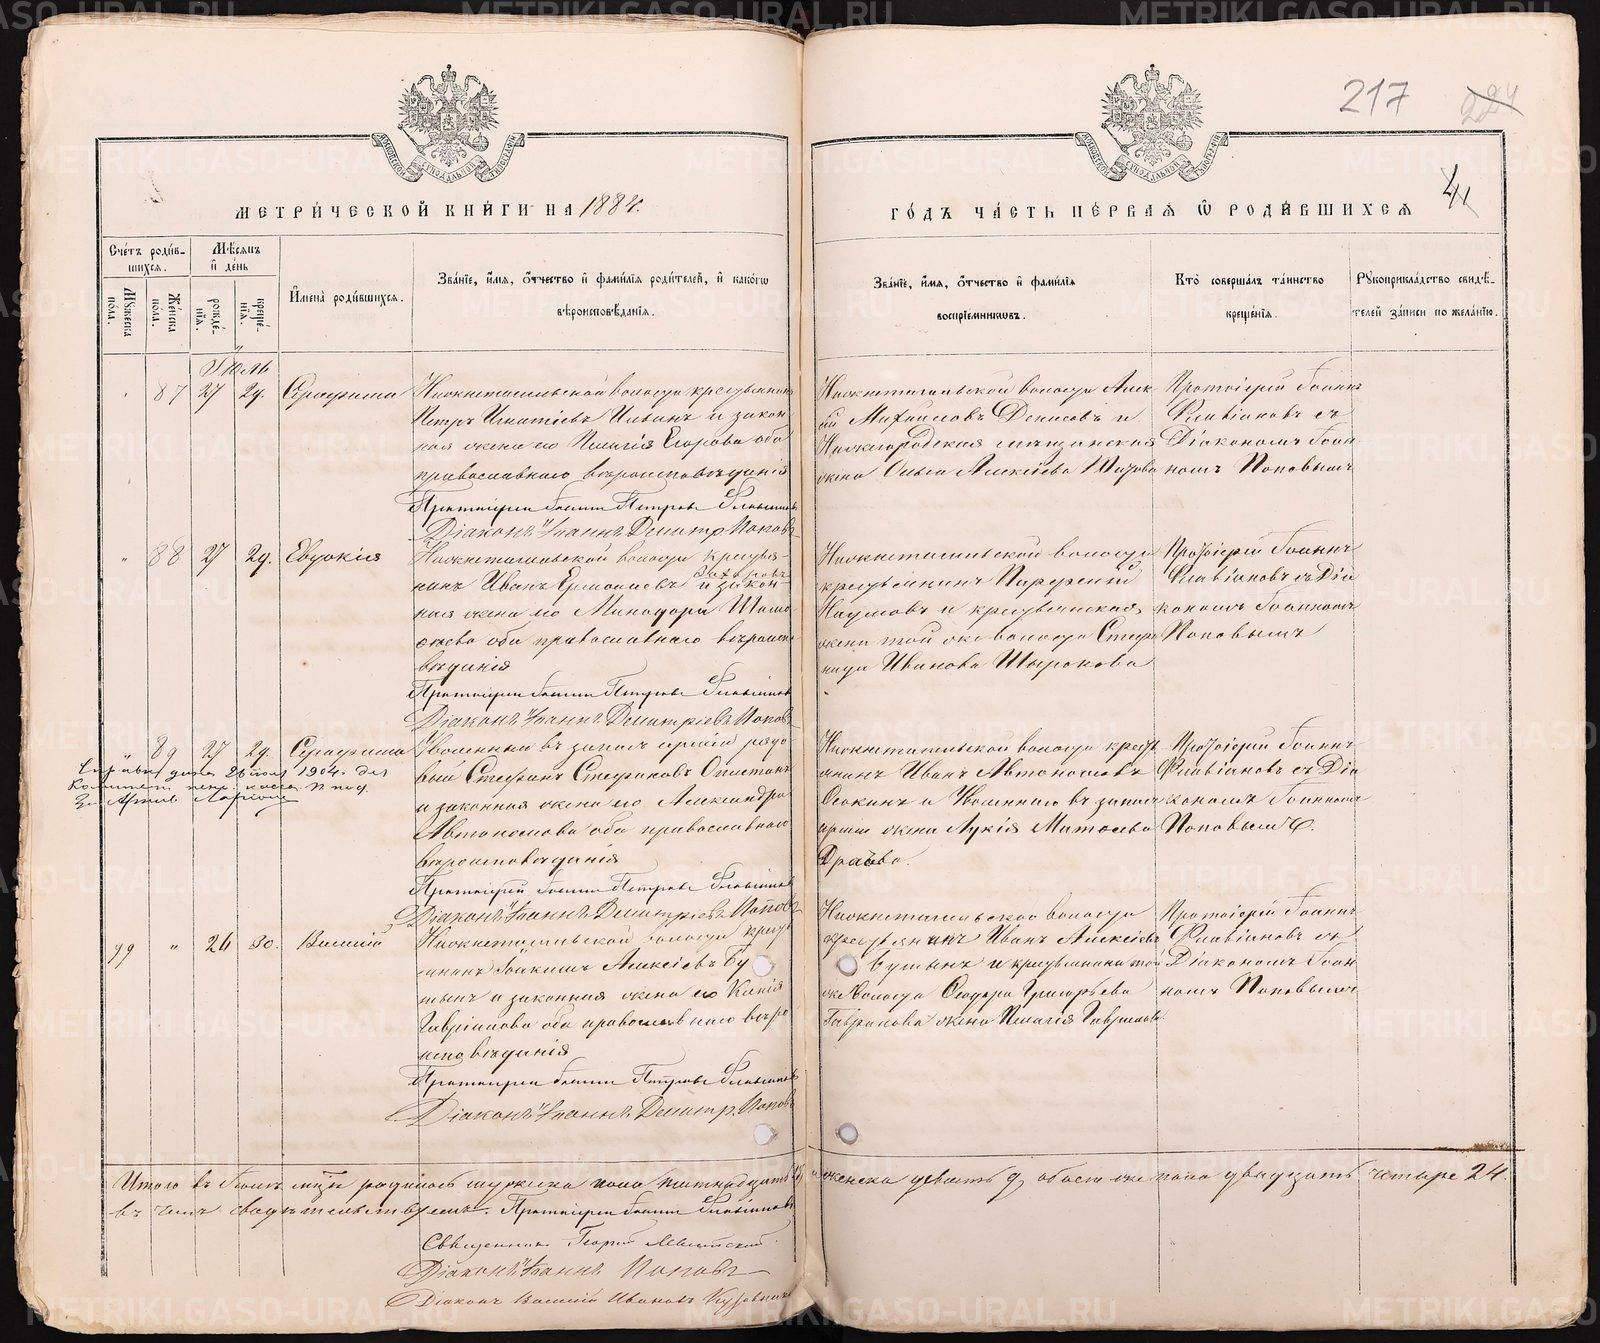 217
224
41
МЕТРИЧЕСКОЙ КНИГИ НА 1884.
ГОДЪ ЧАСТЬ ПЕРВАЯ Ѿ РОДИВШИХСЯ
Счетъ родив-
шихся.
Мужеска пола.
Женска пола.
Мѣсяцъ
и день
рожде-
нія.
креще-
нія.
Имена родившихся.
Званіе, имя, отчество и фамилія родителей, и какогω
вѣроисповѣданія.
Званіе, имя, отчество и фамилія
воспріемниковъ.
Кто совершалъ таинство
крещенія.
Рукоприкладство свидѣ-
телей записи по желанію.
Іюль
87 27 29. Серафима
Нижнетагильской волости крестьянинъ
Петръ Игнатіевъ и закон-
ная жена его Пелагія Егорова оба
православнаго вѣроисповѣданія
Протоіерей Іоаннъ Петровъ Флавіановъ
Діаконъ Іоаннъ Димитр. Поповъ
Нижнетагильской волости Алек
ѣй Михаиловъ Денисовъ и
Нижегородская мѣщанская
жена Ольга Алексіева
Протоіерей Іоаннъ
Флавіановъ съ
Діакономъ Іоан
номъ Поповымъ
" 88 27 29. Евдокія
Нижнетагильской волости крестья-
нинъ Иванъ Ермолаевъ и закон-
ная жена его Минодора
оба православнаго вѣроиспо
вѣданія
Протоіерей Іоаннъ Петровъ Флавіановъ
Діаконъ Іоаннъ Димитріевъ Поповъ
Нижнетагильской волости
крестьянинъ Парфеній
Наумовъ и крестьянская
жена той же волости Стефа
нида Иванова Широкова
Протоіерей Іоаннъ
Флавіановъ съ Діа
кономъ Іоанномъ
Поповымъ
89 27 29. Серафима
Уволенный въ запасъ арміи рядо
вой Стефанъ Стефановъ
и законная жена его Александра
Автономова оба православнаго
вѣроисповѣданія
Протоіерей Іоаннъ Петровъ Флавіановъ
Діаконъ Іоаннъ Димитріевъ Поповъ
Нижнетагильской волости кресть
янинъ Иванъ Автономовъ
Осокинъ и Уволеннаго въ запасъ
арміи жена Лукія Матвѣева
Протоіерей Іоаннъ
Флавіановъ съ Діа
кономъ Іоанномъ
Поповымъ.
99 " 26 30. Василій
Нижнетагильской волости кресть
янинъ Іоакимъ Алексіевъ Бу
тынъ и законная жена его Ксенія
оба православнаго вѣро
исповѣданія
Протоіерей Іоаннъ Петровъ Флавіановъ
Діаконъ Іоаннъ Димитр. Поповъ
Нижнетагильской волости
крестьянинъ Иванъ Алексіевъ
Бутынъ и крестьянина той
же волости Ѳедора Григорьева
жена Пелагія
Протоіерей Іоаннъ
Флавіановъ съ
Діакономъ Іоан
номъ Поповымъ
Итого въ Іюлѣ мцѣ родилось мужеска пола пятнадцать 15 и женска девять 9, обоего же пола двадцать четыре 24.
въ чемъ свидѣтельствуемъ. Протоіерей Іоаннъ Флавіановъ
Священникъ Георгій
Діаконъ Іоаннъ Поповъ
Діаконъ Василій Ивановъ
METRIKI.GASO-URAL.RU